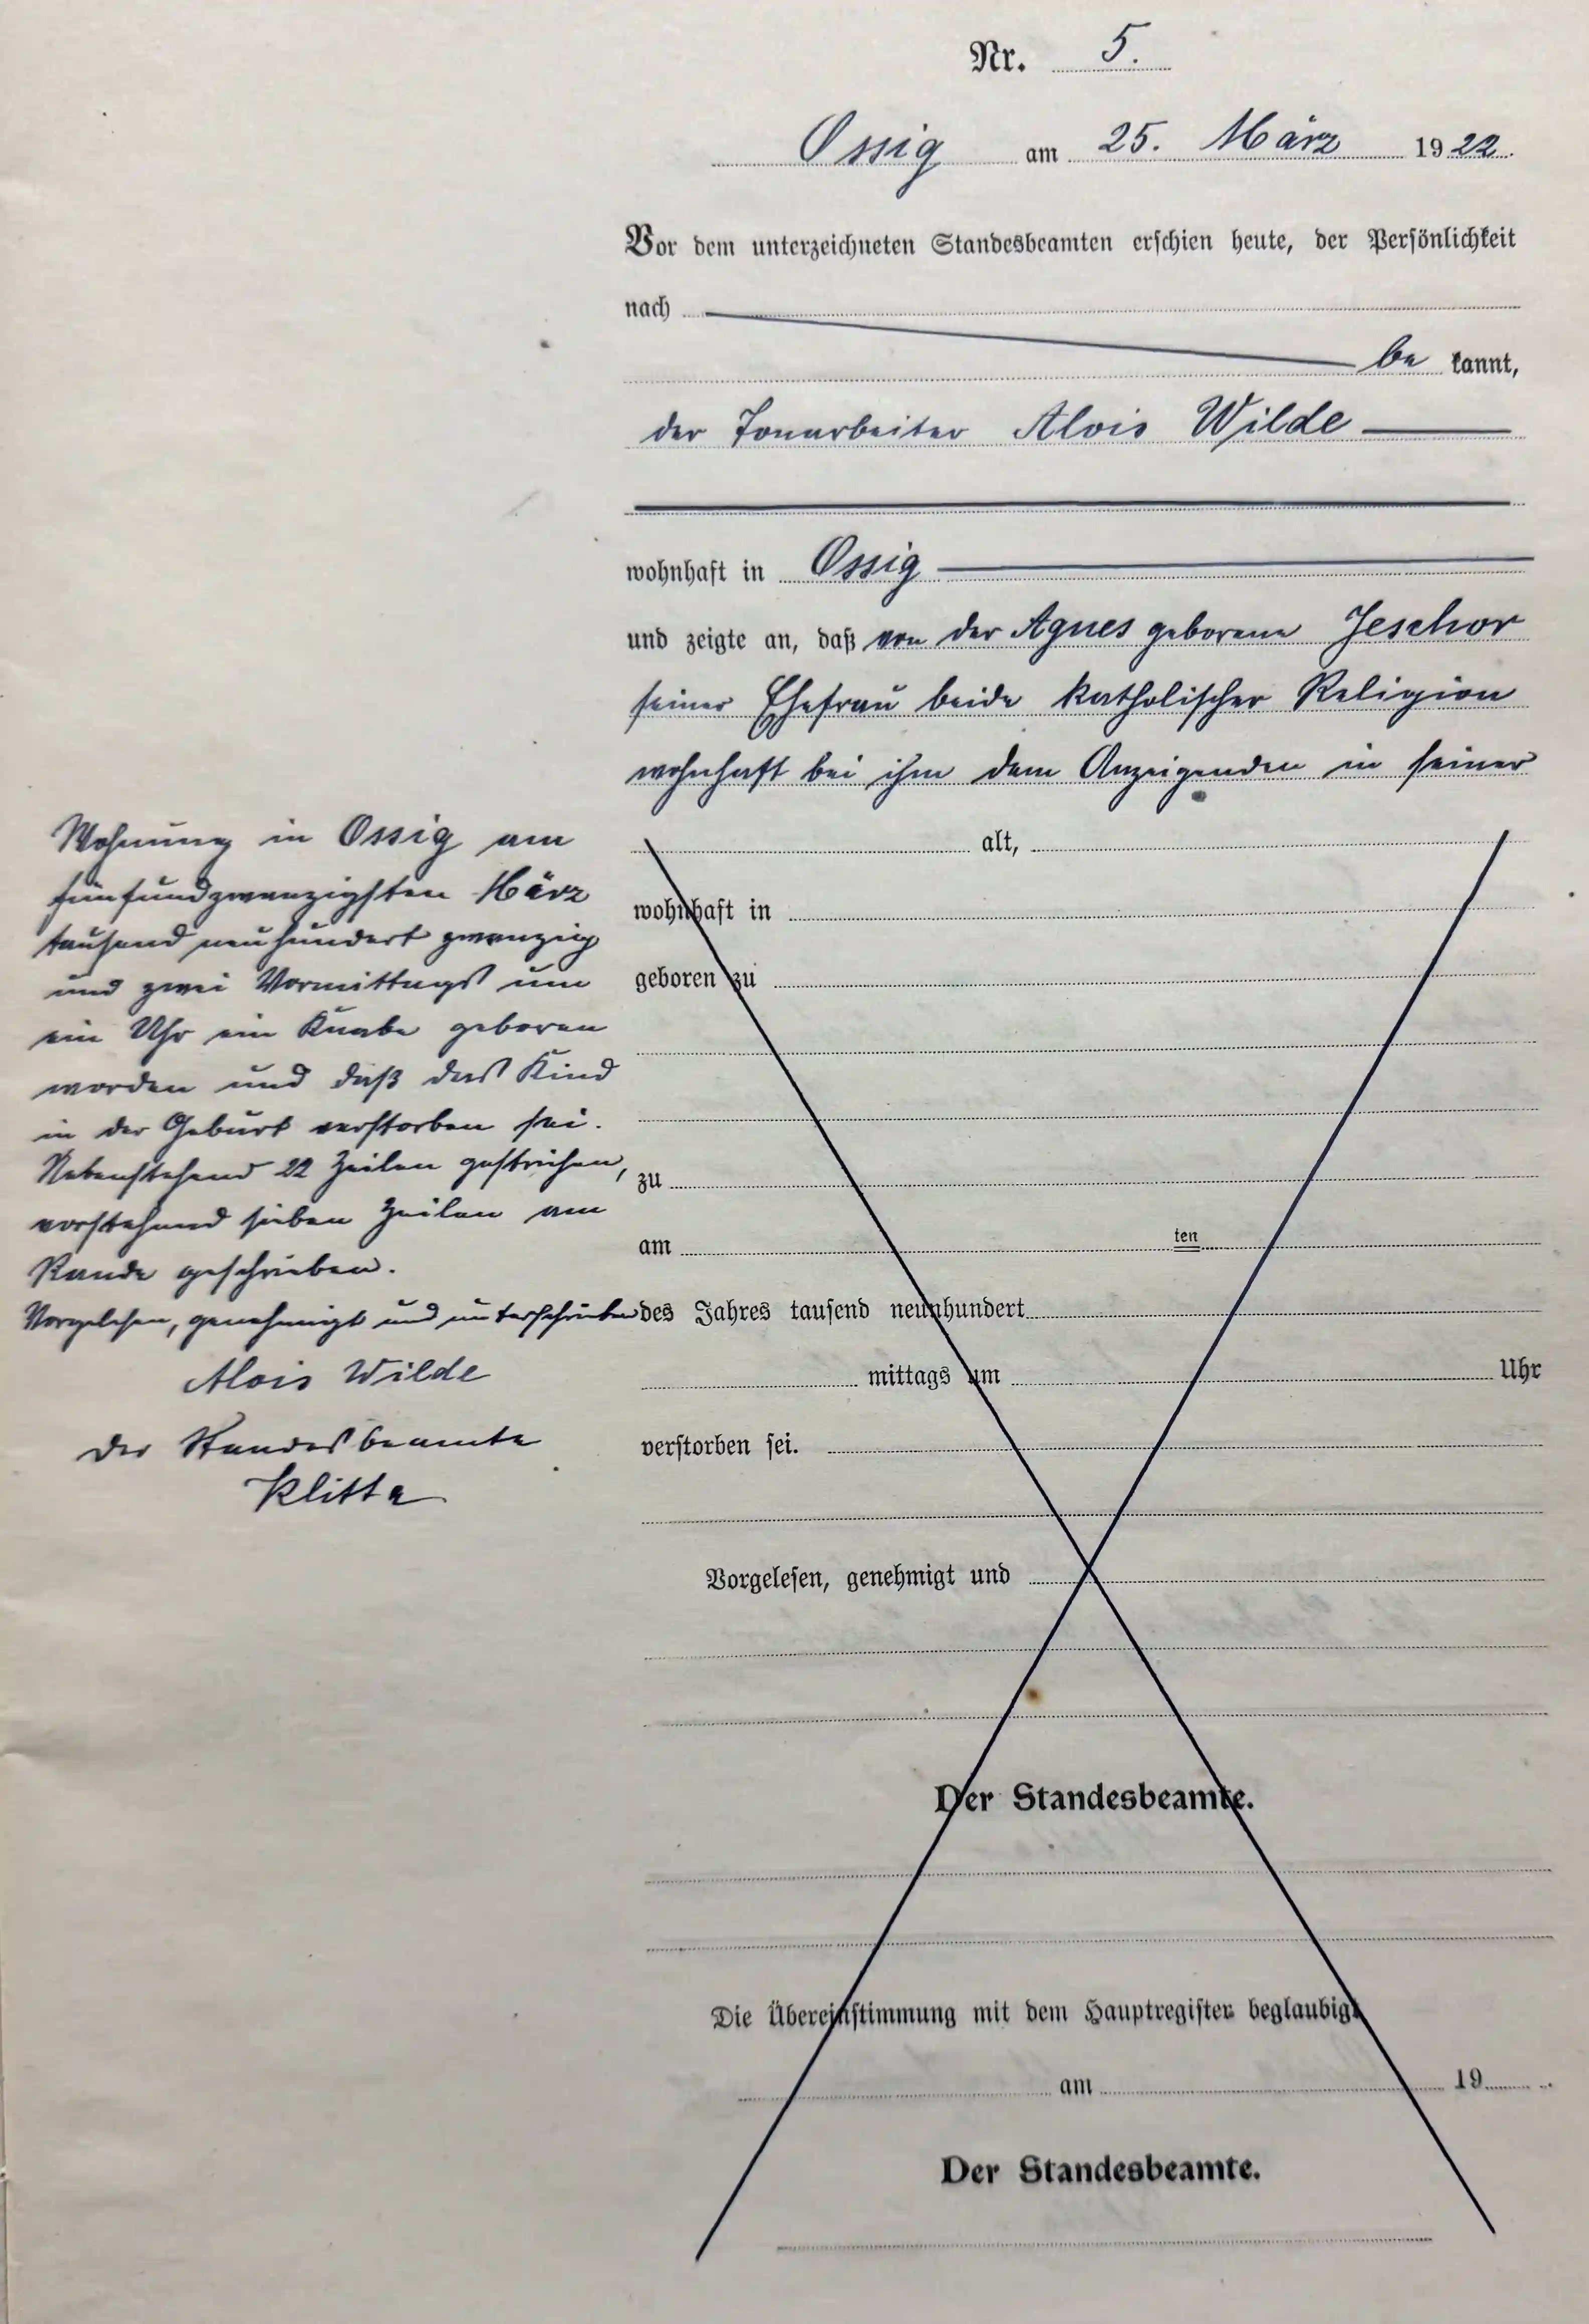 Nr. 5.
Ossig am 25. März 1922.
Vor dem unterzeichneten Standesbeamten erschien heute, der Persönlichkeit
nach
be kannt,
der Tonarbeiter Alois Wilde
wohnhaft in Ossig
und zeigte an, daß von der Agnes geborene Jeschor
seiner Ehefrau beide katholischer Religion
wohnhaft bei ihm dem Anzeigenden in seiner
Wohnung in Ossig am
fünfundzwanzigsten März
tausend neuhundert zwanzig
und zwei Vormittags um
ein Uhr ein Knabe geboren
worden und daß das Kind
in der Geburt verstorben sei.
Nebenstehend 22 Zeilen gestrichen,
vorstehend sieben Zeilen am
Rande geschrieben.
Vorgelesen, genehmigt und unterschrieben
Alois Wilde
Der Standesbeamte
Klitta
alt,
wohnhaft in
geboren zu
zu
am ten
des Jahres tausend neunhundert
mittags um Uhr
verstorben sei.
Vorgelesen, genehmigt und
Der Standesbeamte.
Die Übereinstimmung mit dem Hauptregister beglaubigt
am 19
Der Standesbeamte.